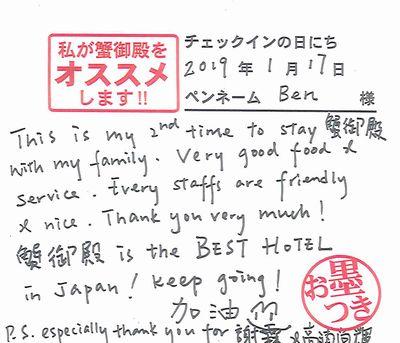 私が蟹御殿を
オススメ
します!!
チェックインの日にち
2019年1月17日
ペンネーム Ben 様
This is my 2nd time to stay 蟹御殿
with my family. Very good food &
service. Every staffs are friendly
& nice. Thank you very much!
蟹御殿 is the BEST HOTEL
in Japan! keep going!
加油
お墨つき
P.S. especially thank you for 謝